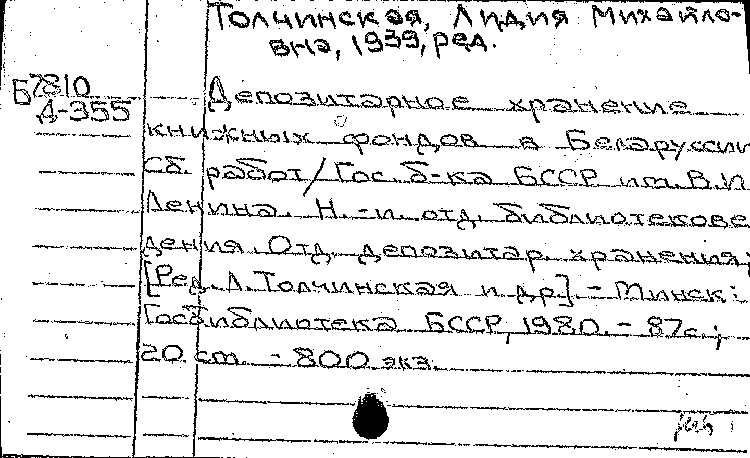 Толчинская, Лидия Михайло-
вна, 1939, ред.
Б7810
Д-355
Депозитарное хранение
книжных фондов в Беларуссии
Сб. работ/Гос. б-ка БССР им. В.И
Ленина. Н.-и. отд. библиотекове
дения. Отд. депозитар. хранения;
[Ред. Л. Толчинская и др]. - Минск:
Госбиблиотека БССР, 1980. - 87с.;
20 cm. - 800 экз.